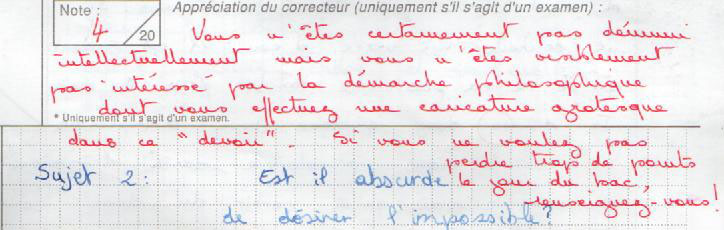 Note :
4 / 20
Appréciation du correcteur (uniquement s'il s'agit d'un examen) :
Vous n'êtes certainement pas démuni
intellectuellement mais vous n'êtes visiblement
pas intéressé par la démarche philosophique
dont vous effectuez une caricature grotesque
* Uniquement s'il s'agit d'un examen.
dans ce "devoir". Si vous ne voulez pas
perdre trop de points
le jour du bac,
renseignez-vous!
Sujet 2 : Est il absurde
de désirer l'impossible?